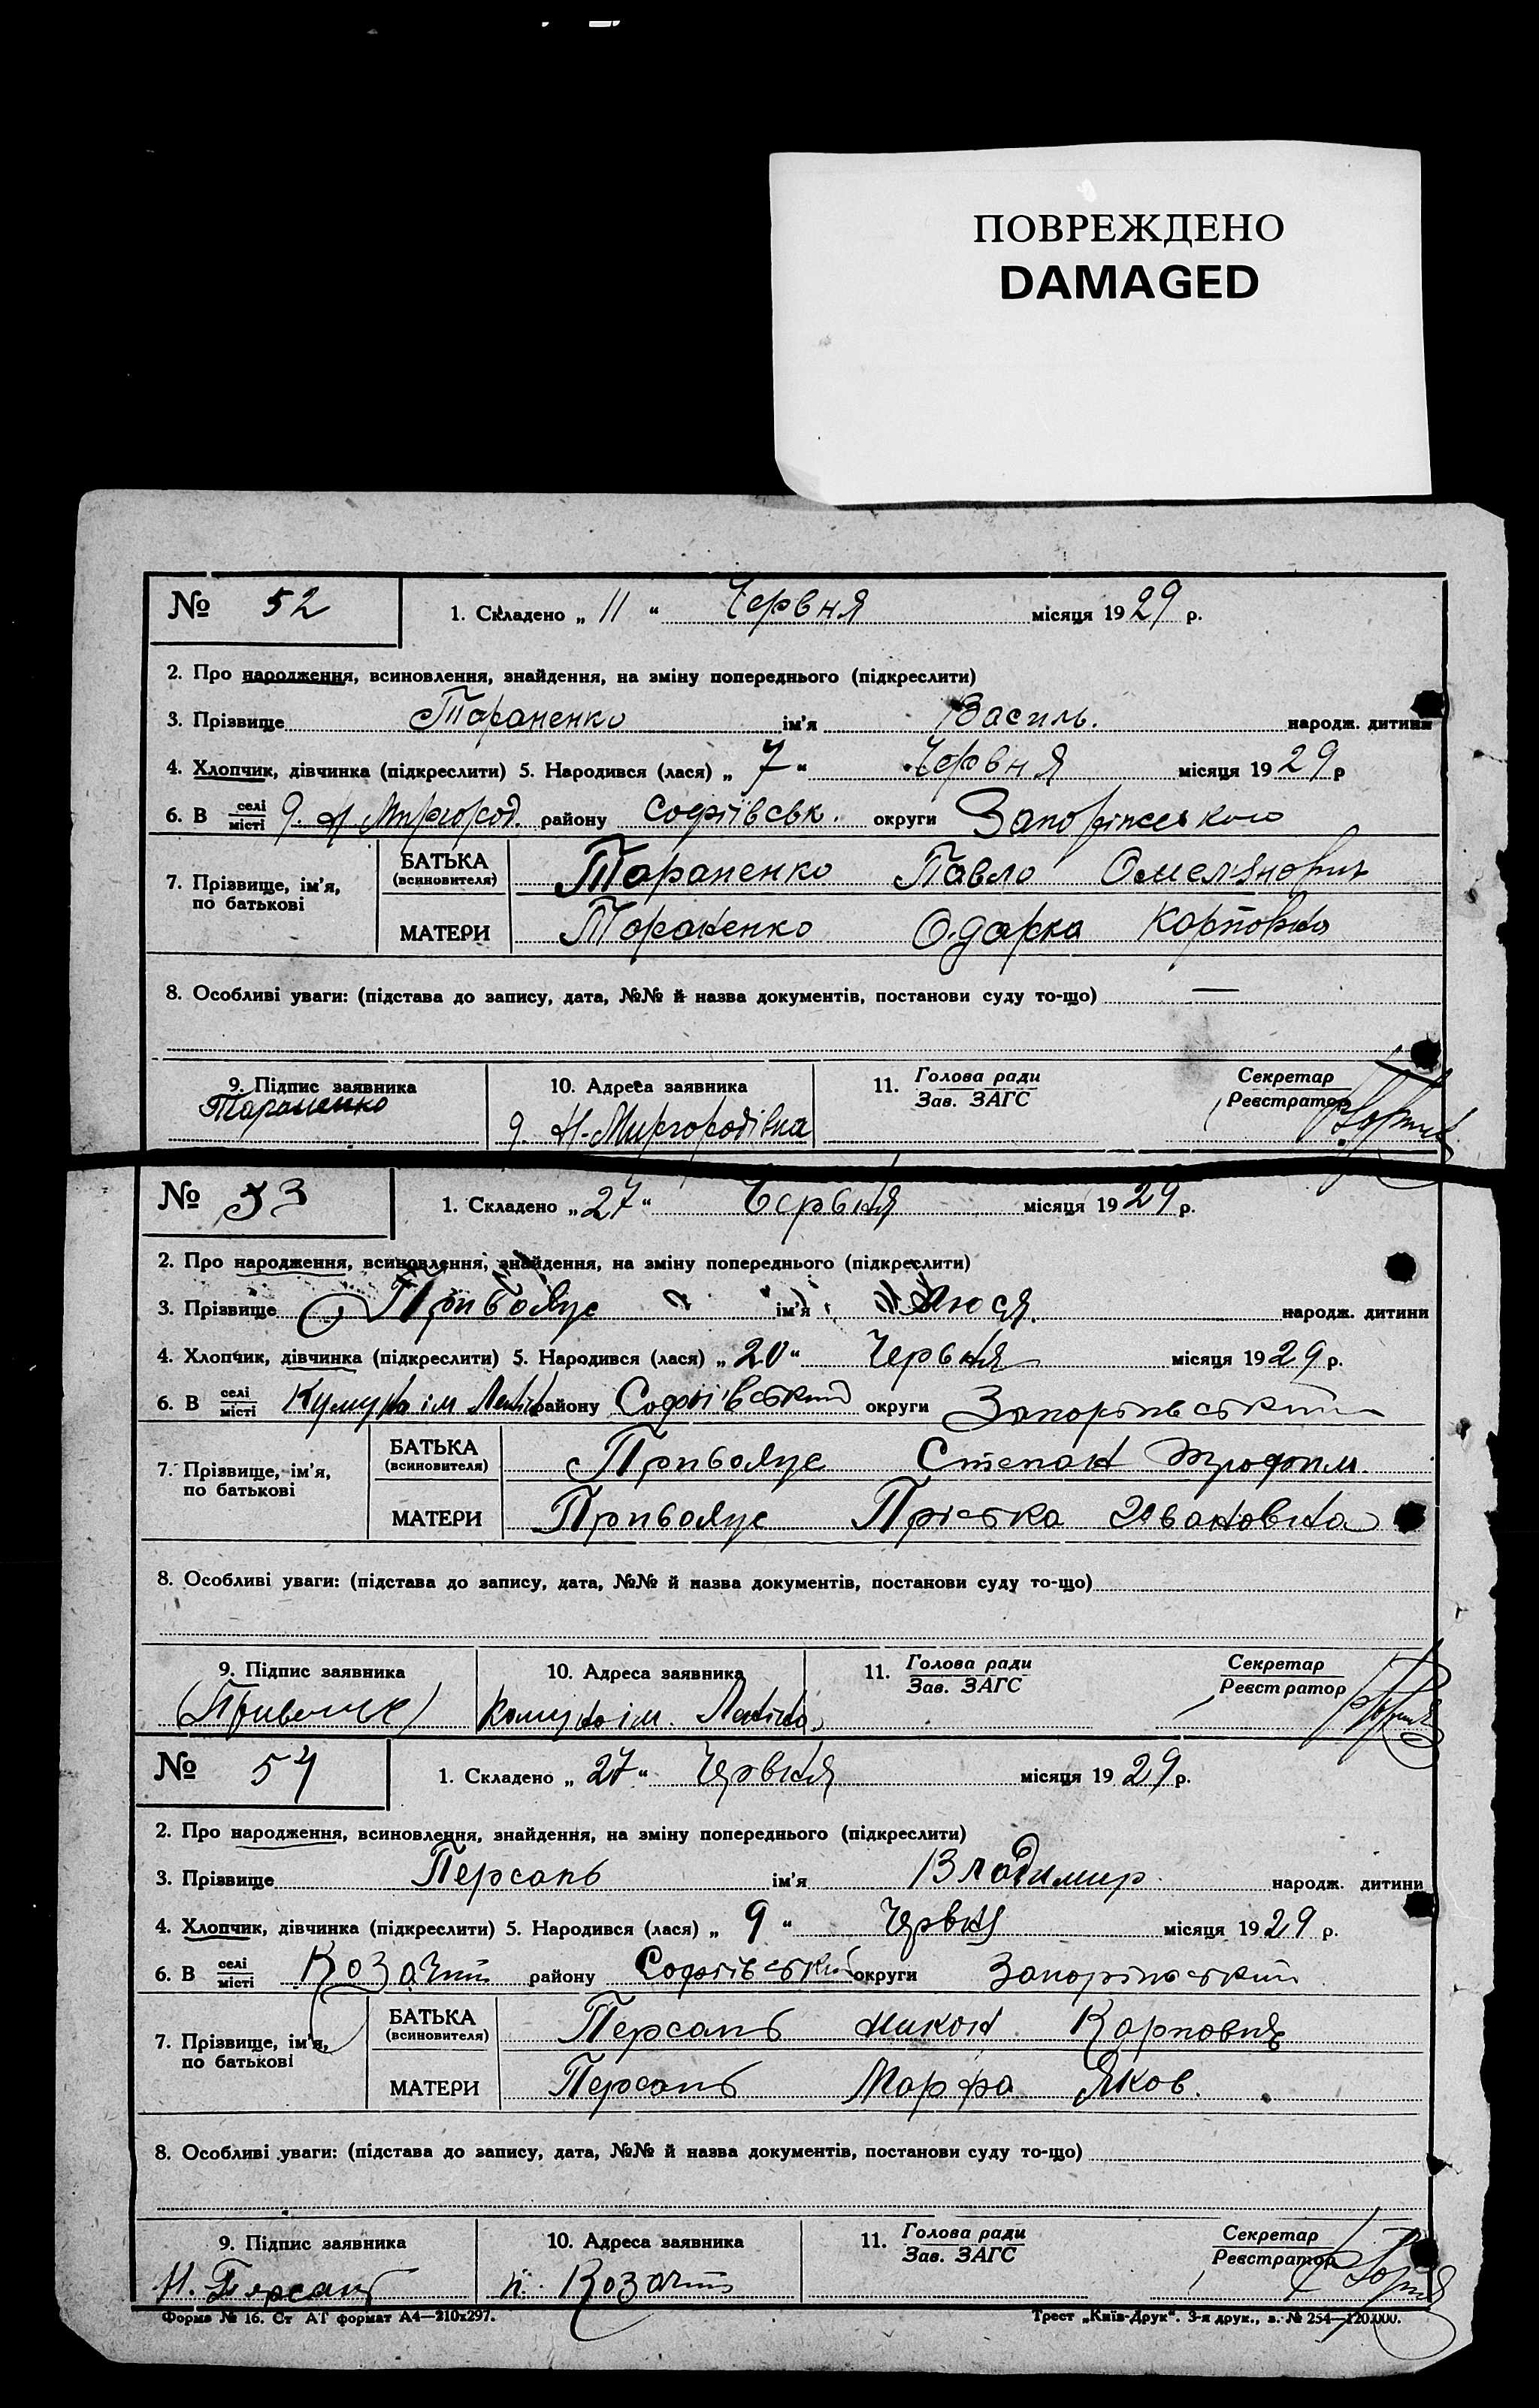 ПОВРЕЖДЕНО
DAMAGED
№ 52 1. Складено „ 11 “ Червня місяця 1929 р.
2. Про народження, всиновлення, знайдення, на зміну попереднього (підкреслити)
3. Прізвище Тараненко ім'я Василь. народж. дитини
4. Хлопчик, дівчинка (підкреслити) 5. Народився (лася) „ 7 “ Червня місяця 1929 р
6. В селі місті Миргород. району Софіївськ. округи
7. Прізвище, ім'я, по батькові БАТЬКА (всиновителя) Тараненко Павло Омелянович
МАТЕРИ Тараненко Одарка Карповна
8. Особливі уваги: (підстава до запису, дата, №№ й назва документів, постанови суду то-що) —
9. Підпис заявника 10. Адреса заявника 11. Голова ради Зав. ЗАГС Секретар Реєстратор
Тараненко Н-Миргородівка
№ 53 1. Складено „ 27 “ Червня місяця 1929 р.
2. Про народження, всиновлення, знайдення, на зміну попереднього (підкреслити)
3. Прізвище ім'я Люся. народж. дитини
4. Хлопчик, дівчинка (підкреслити) 5. Народився (лася) „ 20 “ Червня місяця 1929 р.
6. В селі місті ім Леніна району Софіївський округи
7. Прізвище, ім'я, по батькові БАТЬКА (всиновителя) Степан Трофим.
МАТЕРИ Пріська Ивановна
8. Особливі уваги: (підстава до запису, дата, №№ й назва документів, постанови суду то-що)
9. Підпис заявника 10. Адреса заявника 11. Голова ради Зав. ЗАГС Секретар Реєстратор
Комуна ім. Леніна
№ 54 1. Складено „ 27 “ Червня місяця 1929 р.
2. Про народження, всиновлення, знайдення, на зміну попереднього (підкреслити)
3. Прізвище Персань ім'я Владимир. народж. дитини
4. Хлопчик, дівчинка (підкреслити) 5. Народився (лася) „ 9 “ Червня місяця 1929 р.
6. В селі місті Козачий району Софіївський округи
7. Прізвище, ім'я, по батькові БАТЬКА (всиновителя) Персань Никон Карпович
МАТЕРИ Персань Марфа Яков.
8. Особливі уваги: (підстава до запису, дата, №№ й назва документів, постанови суду то-що)
9. Підпис заявника 10. Адреса заявника 11. Голова ради Зав. ЗАГС Секретар Реєстратор
Н. Персань Козачий
Форма № 16. Ст АГ формат А4—210x297. Трест „Київ-Друк“. 3-я друк., з. № 254—120.000.